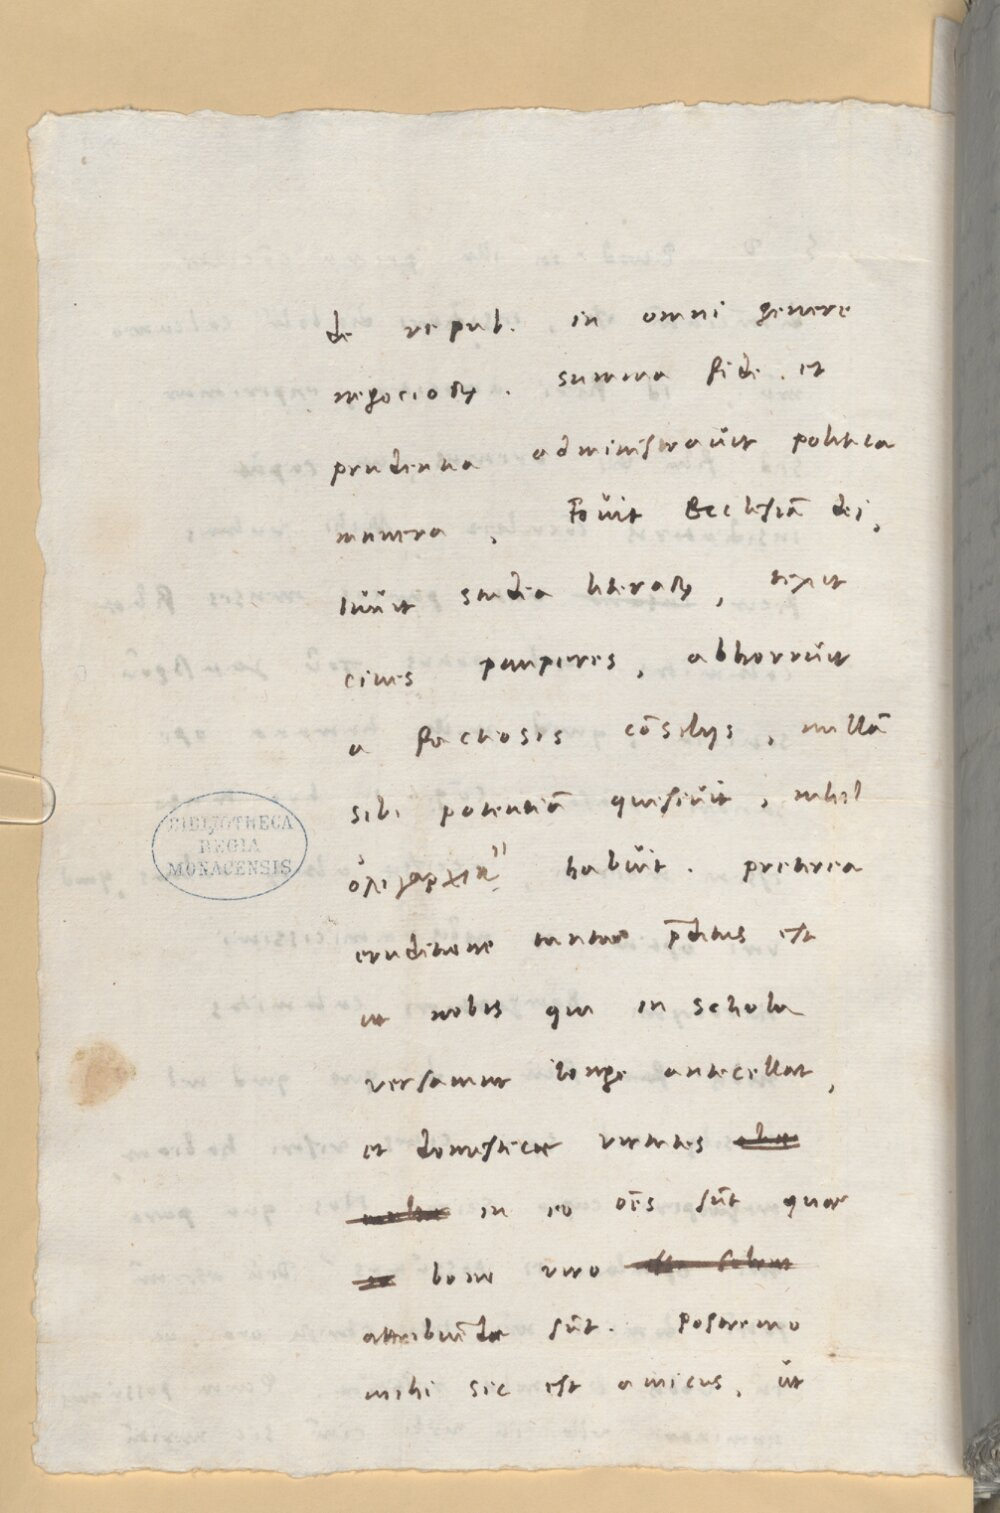 de repub. in omni genere
negocioꝝ. summa fide et
prudentia administravit politica
munera, Fovit Ecclesiā dei,
iuvit studia literaꝝ, texit
cives pauperes, abhorruit
a factiosis cōsilijs, nullā
sibi potentiā quesivit, nihil
ὀλιγαρχικ habuit. preterea
eruditione tanta p̄ditus est
ut nobis qui in schola
versamur longe antecellat,
et domesticae virtutes
in eo oēs sūt quae
bono viro
attribuēdae sūt. Postremo
mihi sic est amicus, ut
BIBLIOTHECA
REGIA
MONACENSIS